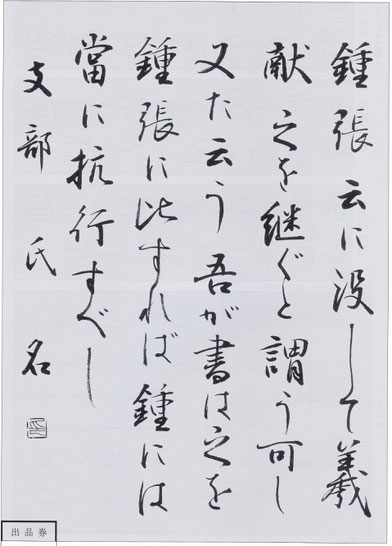 鍾張云に没して羲
献之を継ぐと謂う可し
又た云う吾が書は之を
鍾張に比すれば鍾には
當に抗行すべし
支部 氏名
出品券